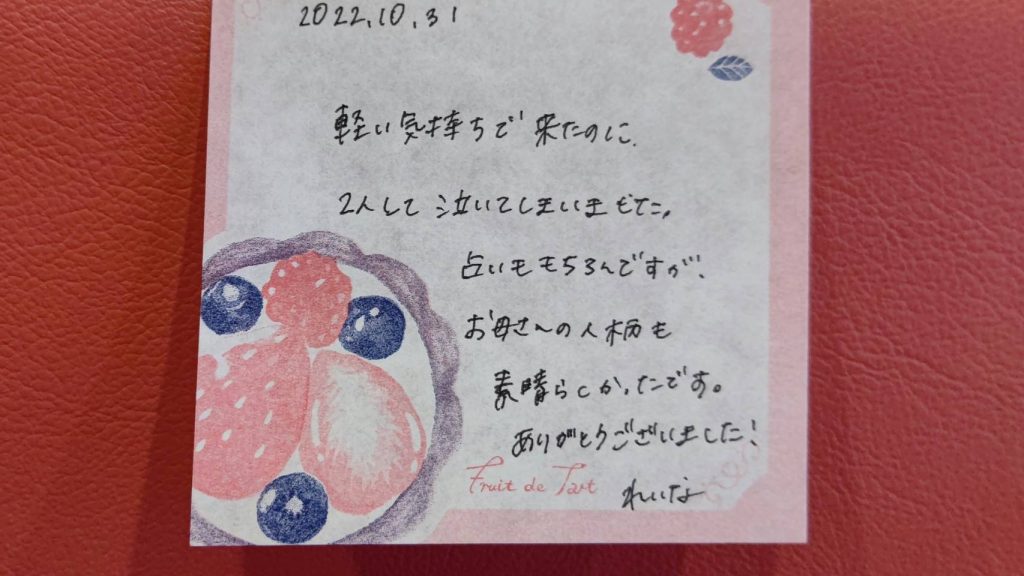 2022.10.31
軽い気持ちで来たのに、
2人して泣いてしまいました。
占いももちろんですが、
お母さんの人柄も
素晴らしかったです。
ありがとうございました!
Fruit de Tart
れいな